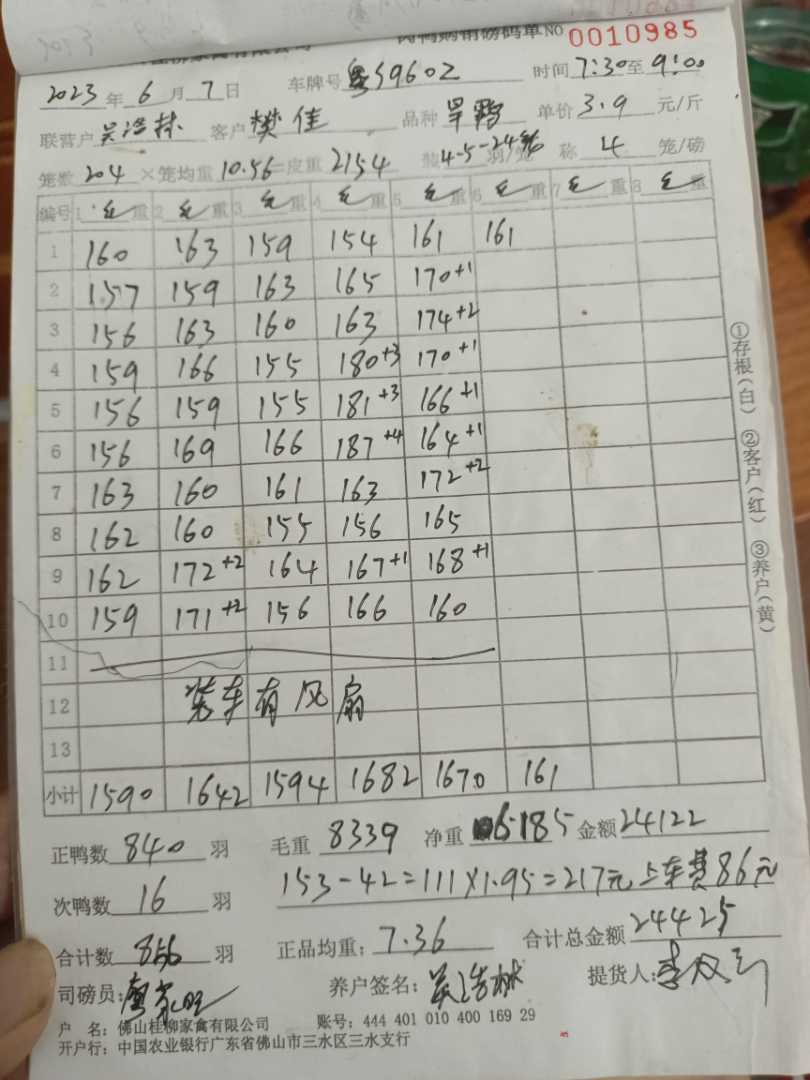 肉鸭购销磅码单 NO 0010985
2023 年 6 月 7 日 车牌号 粤S9602 时间 7:30 至 9:00
联营户 吴浩林 客户 樊佳 品种 旱鸭 单价 3.9 元/斤
笼数 204 ×笼均重 10.56 =皮重 2154 4-5-24 羽/笼 称 4 笼/磅
编号 1 毛重 2 毛重 3 毛重 4 毛重 5 毛重 6 毛重 7 毛重 8 毛重
1 160 163 159 154 161 161
2 157 159 163 165 170+1
3 156 163 160 163 174+2
4 159 166 155 180+3 170+1
5 156 159 155 181+3 166+1
6 156 169 166 187+4 164+1
7 163 160 161 163 172+2
8 162 160 155 156 165
9 162 172+2 164 167+1 168+1
10 159 171+2 156 166 160
11
12 装车有风扇
13
小计 1590 1642 1594 1682 1670 161
①存根(白) ②客户(红) ③养户(黄)
正鸭数 840 羽 毛重 8339 净重 6185 金额 24122
次鸭数 16 羽 153-42=111×1.95=217元 上车费86元
合计数 856 羽 正品均重: 7.36 合计总金额 24425
司磅员: 养户签名: 吴浩林 提货人:
户 名: 佛山桂柳家禽有限公司 账号: 444 401 010 400 169 29
开户行: 中国农业银行广东省佛山市三水区三水支行